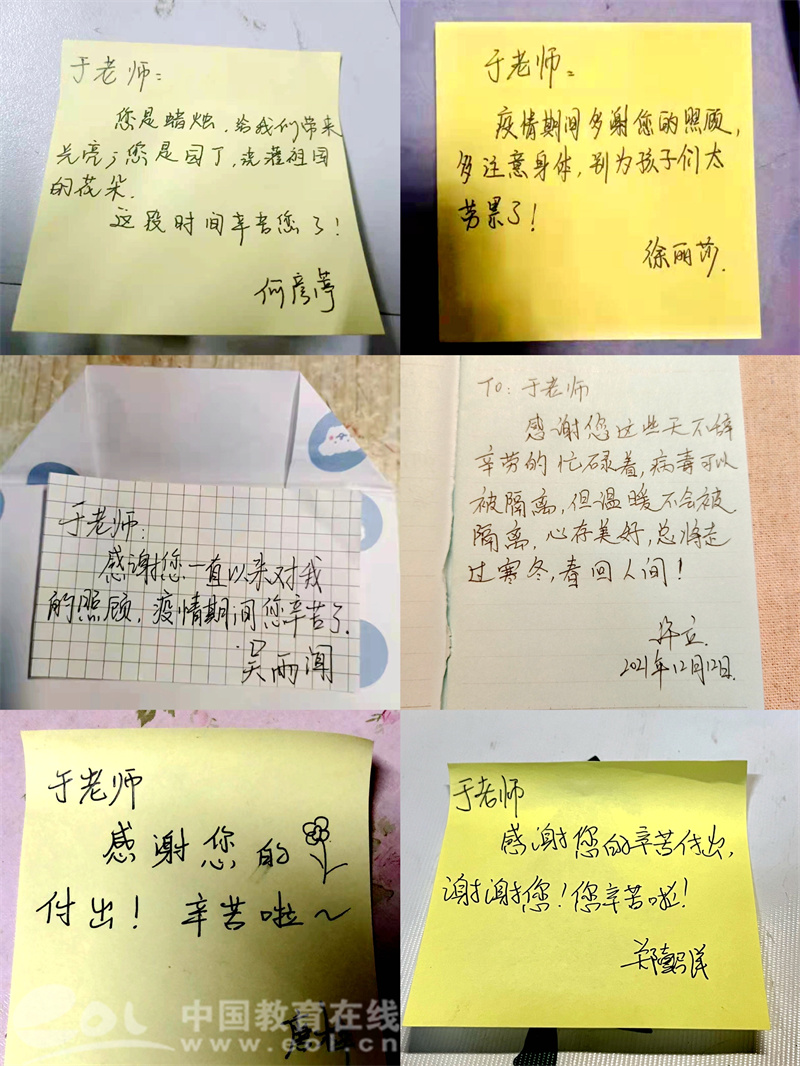 于老师：
您是蜡烛，给我们带来
光亮；您是园丁，浇灌祖国
的花朵.
这段时间辛苦您了！
何彦
于老师：
疫情期间多谢您的照顾，
多注意身体，别为孩子们太
劳累了！
徐丽莎.
于老师：
感谢您一直以来对我
的照顾，疫情期间您辛苦了.
吴雨闻
TO：于老师
感谢您这些天不辞
辛劳的忙碌着，病毒可以
被隔离，但温暖不会被
隔离，心存美好，总将走
过寒冬，春回人间！
立
2021年12月12日.
于老师
感谢您的
付出！辛苦啦~
于老师
感谢您的辛苦付出，
谢谢您！您辛苦啦！
郑
eol 中国教育在线
www.eol.cn